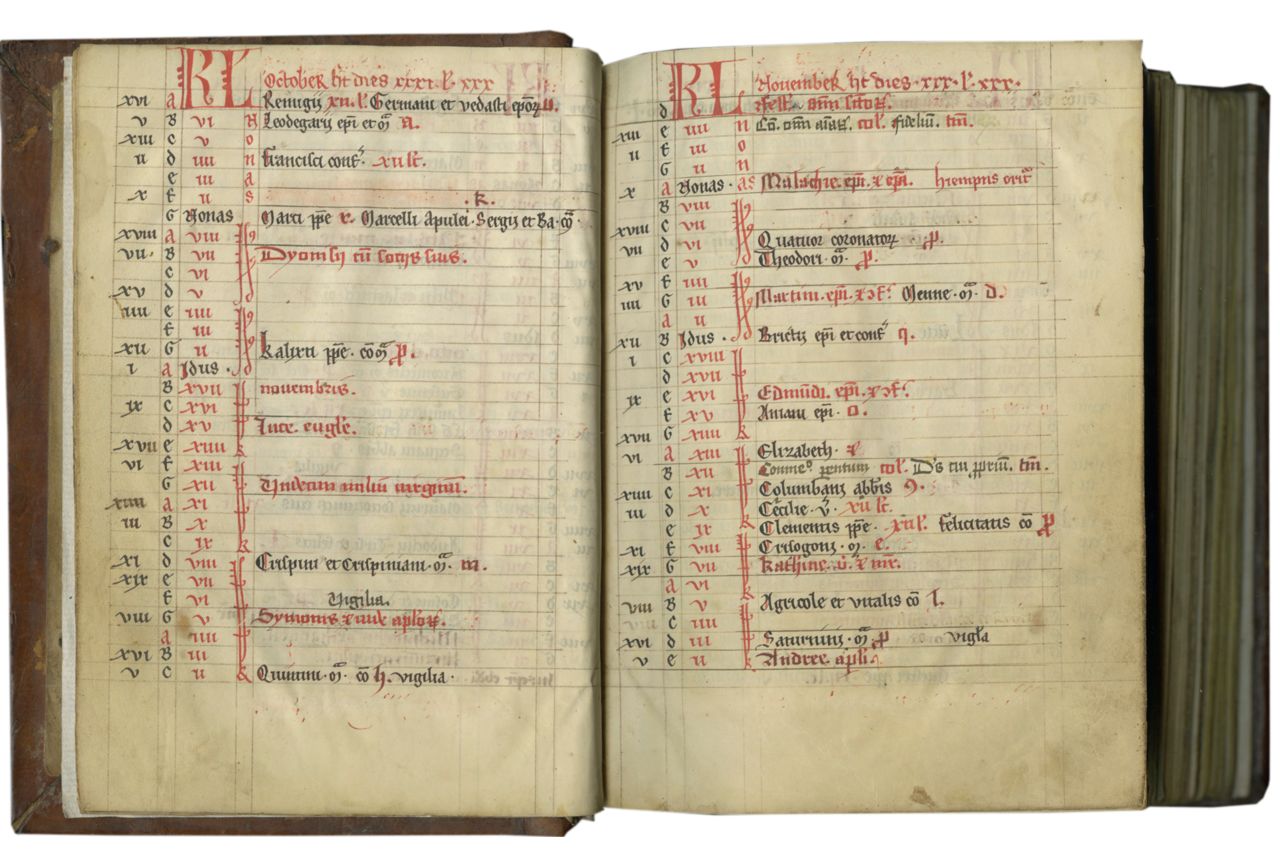 KL October ht dies xxxi l xxx
xvi a Remigij xii. l. Germani et vedasti epōꝝ
v B vi N Leodegarij epī et m̄
xiii c v o
ii d iiii n francisci conf. xii lc̄.
e iii a
x f ii s .k.
G Nonas Marci pp̄e Marcelli Apulei. Sergij et Ba. cō
xviii a viii Jd
vii. B vii Dyonisij cū socijs suis.
c vi
xv d v
iiii e iiii
f iii
xii G ii Kalixti pp̄e. cō m̄
i a Jdus .
B xvii novembris.
ix c xvi
d xv Luce. evgle.
xvii e xiiii k
vi f xiii
G xii Undecim miliū virginū.
xiiii a xi
iii B x
c ix k
xi d viii Crispini et Crispiniani. m̄. m.
xix e vii
f vi Vigilia.
viii G v Symonis et iude aplōꝝ.
a iiii
xvi B iii
v c ii k Quintini. m̄. cō h. vigilia.
KL November ht dies. xxx. l. xxx.
d om̄ scōꝝ.
xiii e iiii n Cō. om̄ aīaꝝ. col. fidelium. tm̄.
ii f iii o
G ii n
x a Nonas . as Malachie. epī. hiempns orit̄
B viii
xviii c vii
vii d vi Quatuor coronatoꝝ p.
e v Theodori. m̄. p.
xv f iiii
iiii G iii Martini. epī. Menne. m̄. d.
a ii
xii B Jdus . Brictij epī et conf q.
i c xviii
d xvii
ix e xvi Edmūdi. epī.
f xv Aniani epī. o.
xvii G xiiii k
vi a xiii Elizabeth.
B xii col. D's tm̄.
xiiii c xi Columbani abb̄is 9.
iii d x Cecilie. v̄. xii lc̄.
e ix Clementis pp̄e. xii l. felicitatis cō p
xi f viii Crisogoni. m̄. e.
xix G vii Kath'ine. v̄. et mr̄.
a vi
viii B v Agricole et vitalis cō l.
viii c iiii
xvi d iii Saturnini. m̄. p vigl̄a
v e ii k Andree. apl̄i